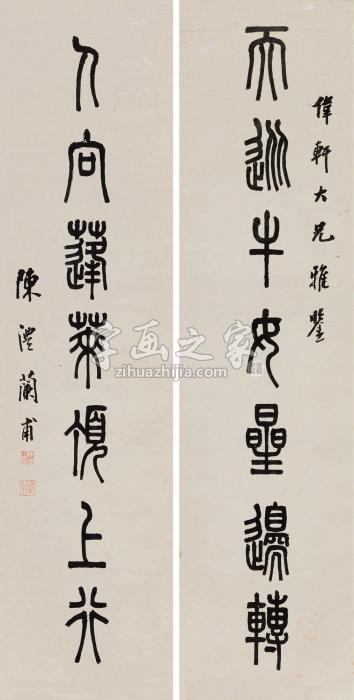 偉軒大兄雅鑒
天從牛女星邊轉
人向蓬萊頂上行
陳澧蘭甫
字画之家
zihuazhijia.com